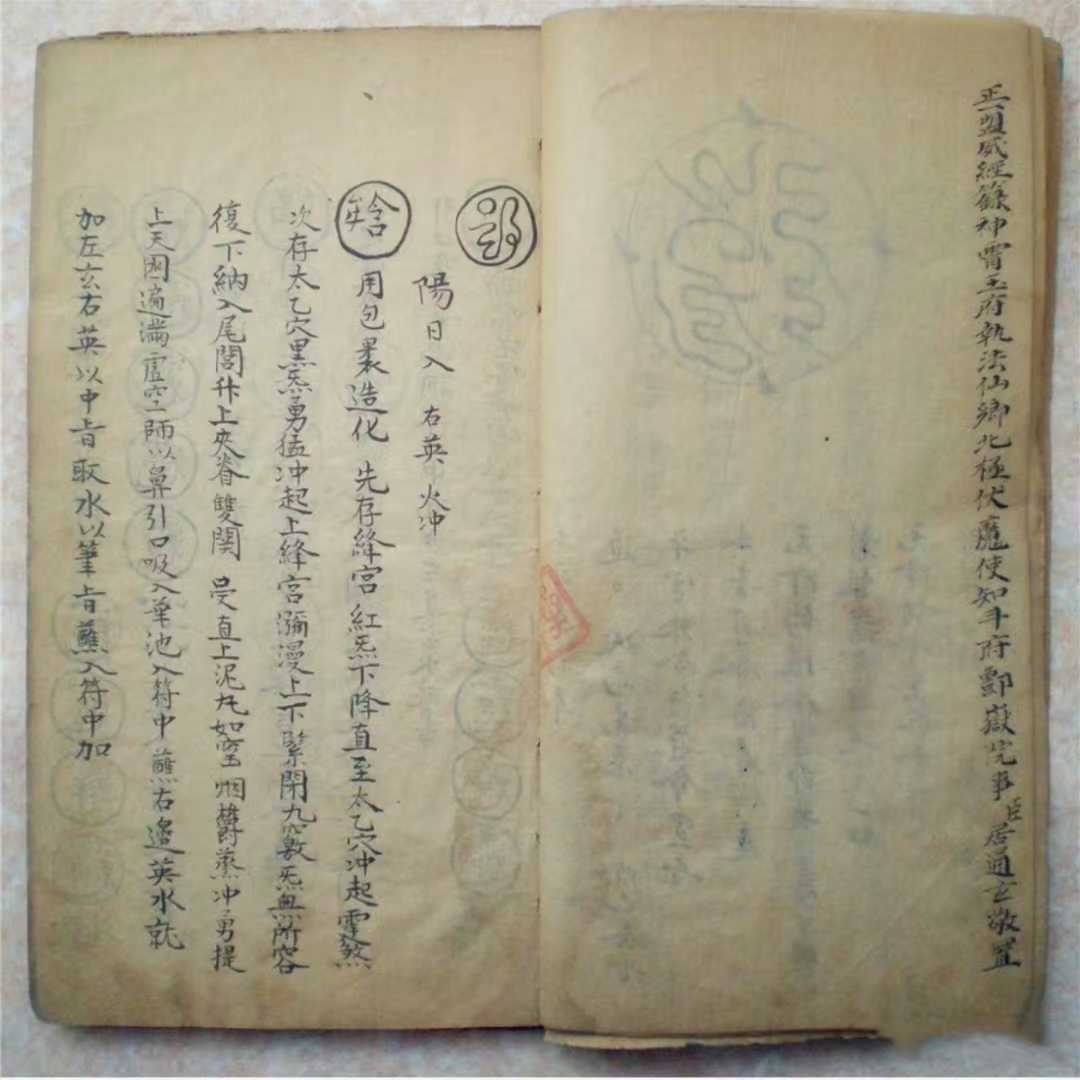 正一盟威經籙神霄玉府執法仙卿北極伏魔使知斗府酆嶽院事臣居通玄敬置
陽日入 右英火冲
用包裹造化 先存絳宮紅炁下降直至太乙穴冲起雷煞
次存太乙穴黑炁勇猛冲起上絳宮瀰漫上下緊閉九竅炁無所容
復下納入尾閭升上夾脊雙関 直上泥丸如 烟欝蒸冲勇提
上天圎遍滿虛空師以鼻引口吸入華池入符中蘸右邊英水就
加左玄右英以中旨取水以筆旨蘸入符中加